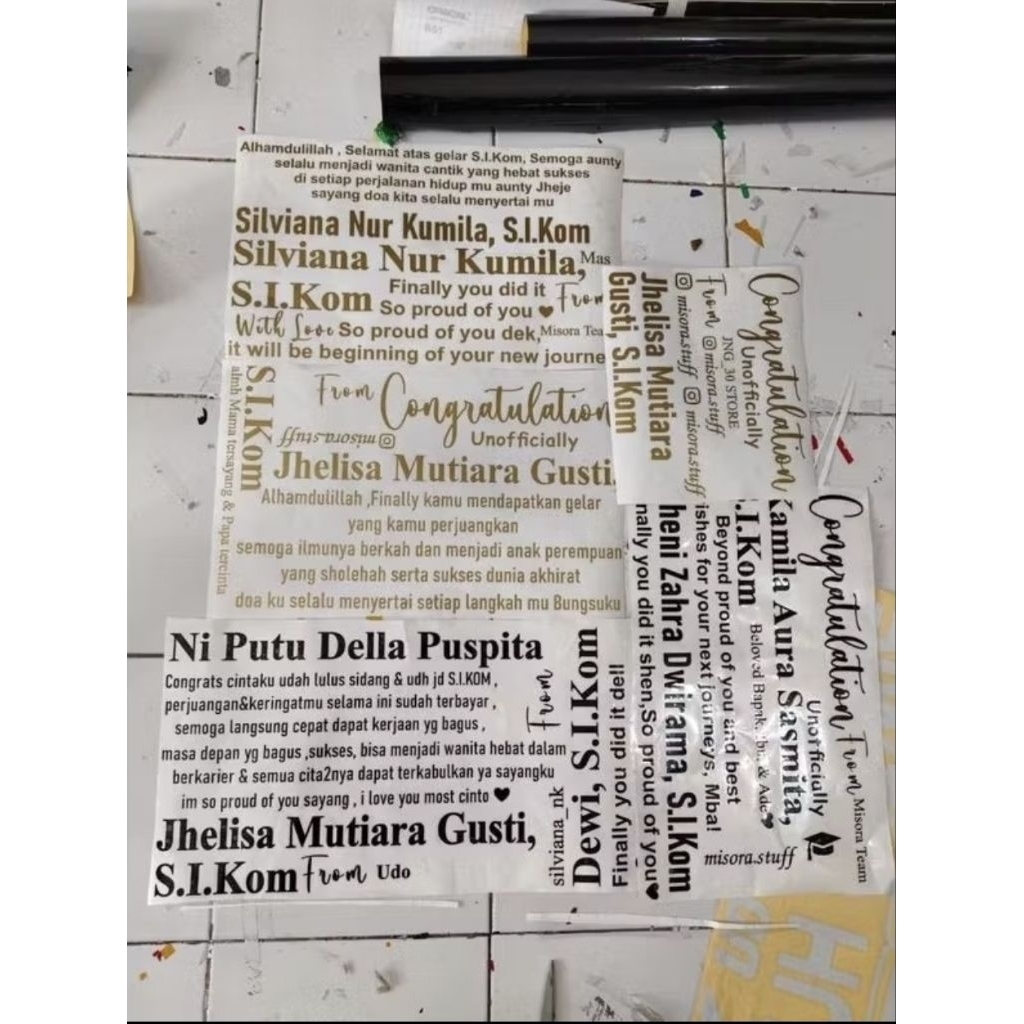 Alhamdulillah , Selamat atas gelar S.I.Kom, Semoga aunty
selalu menjadi wanita cantik yang hebat sukses
di setiap perjalanan hidup mu aunty Jheje
sayang doa kita selalu menyertai mu
Silviana Nur Kumila, S.I.Kom
Silviana Nur Kumila,
Mas
S.I.Kom
Finally you did it
So proud of you ♥
From
With Love
So proud of you dek,
Misora Tea
it will be beginning of your new journe
almh Mama tersayang & Papa tercinta
S.I.Kom
From
Congratulation
misora-stuff
Unofficially
Jhelisa Mutiara Gusti,
Alhamdulillah ,Finally kamu mendapatkan gelar
yang kamu perjuangkan
semoga ilmunya berkah dan menjadi anak perempuan
yang sholehah serta sukses dunia akhirat
doa ku selalu menyertai setiap langkah mu Bungsuku
Congratulation
Unofficially
JNG_30 STORE
From
misora.stuff
misora.stuff
misora.stuff
Jhelisa Mutiara
Gusti, S.I.Kom
Ni Putu Della Puspita
Congrats cintaku udah lulus sidang & udh jd S.I.KOM ,
perjuangan&keringatmu selama ini sudah terbayar ,
semoga langsung cepat dapat kerjaan yg bagus ,
masa depan yg bagus ,sukses, bisa menjadi wanita hebat dalam
berkarier & semua cita2nya dapat terkabulkan ya sayangku
im so proud of you sayang , i love you most cinto ♥
Jhelisa Mutiara Gusti,
S.I.Kom
From
Udo
From
silviana_nk
Dewi, S.I.Kom
Finally you did it del!
Congratulation
From
Misora Team
Unofficially
Kamila Aura Sasmita,
S.I.Kom
Beloved Bapak, Ibu, & Ade♥
Beyond proud of you and best
ishes for your next journeys, Mba!
heni Zahra Dwirama, S.I.Kom
nally you did it shen,So proud of you♥
misora.stuff